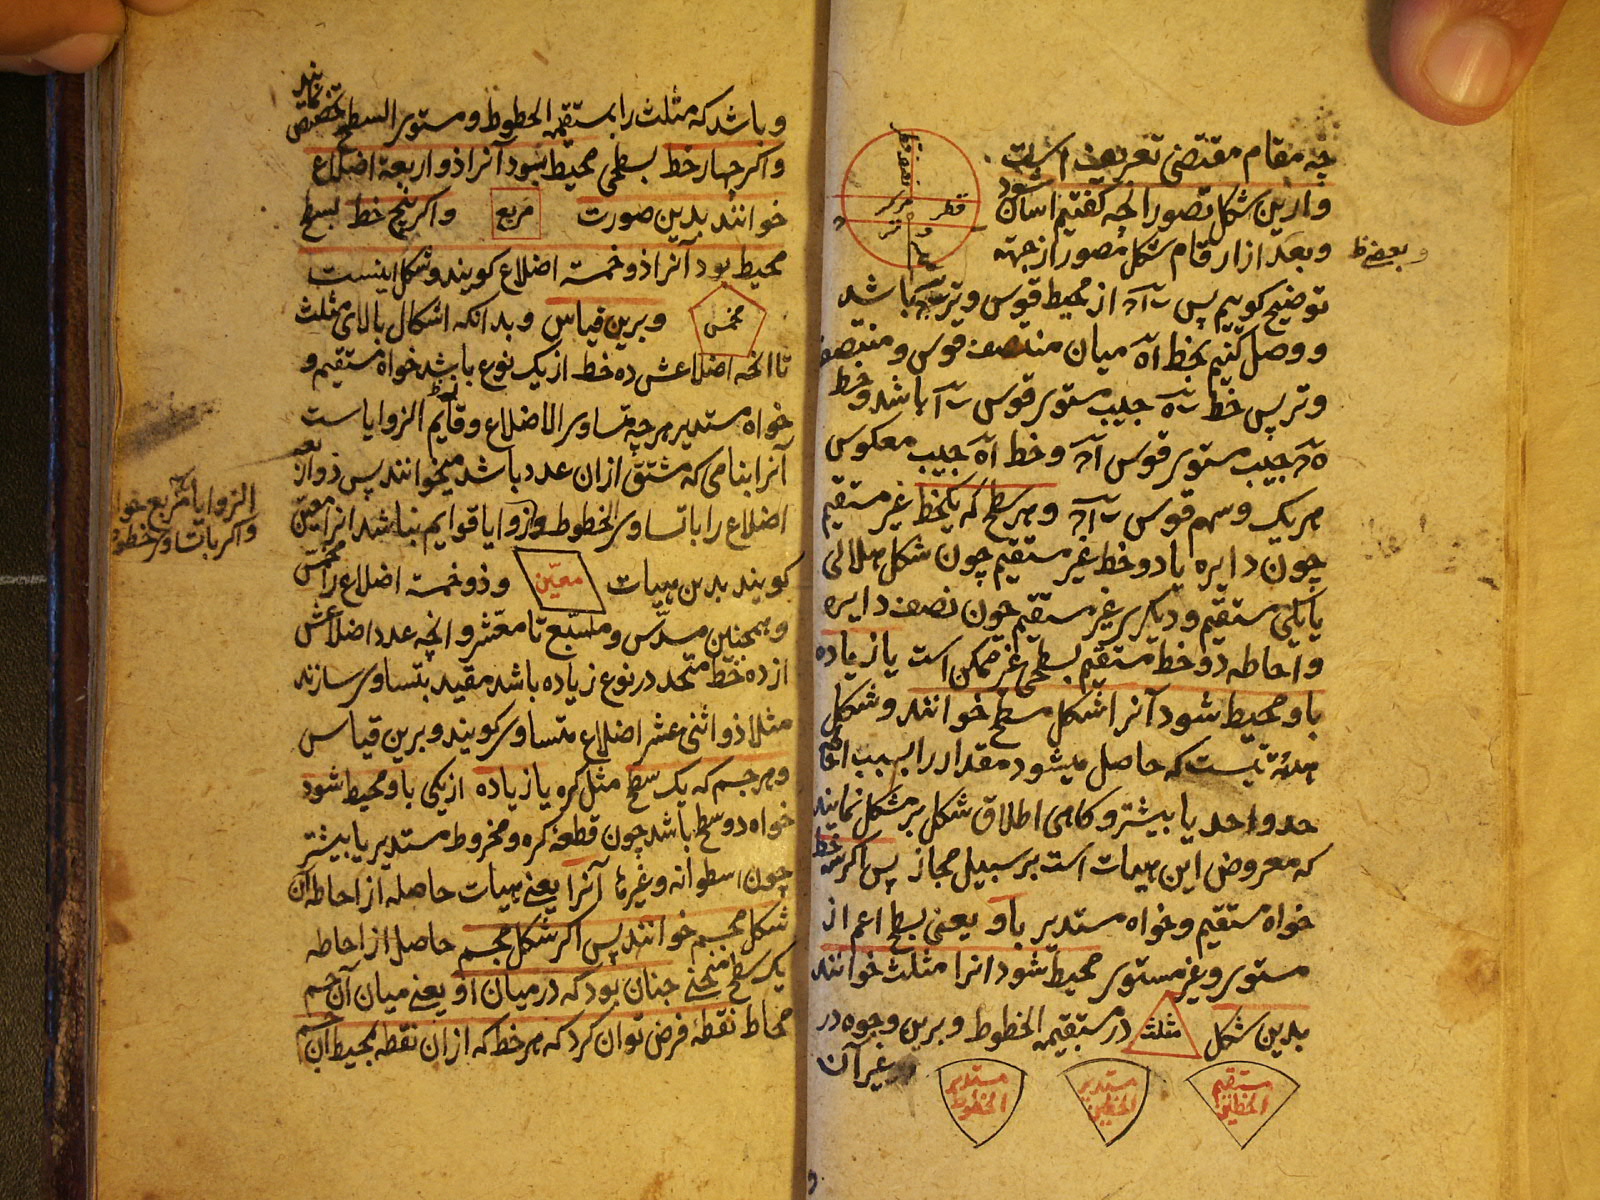 چه مقام مقتضی تعریف است
و ازین شکل تصور انچه کفتیم اسان شود
و بعد از ارقام شکل مصور از جهته
توضیح کوییم پس از محیط قوس و وتر باشد
و وصل کنیم بخط میان منتصف قوس و منتصف
وتر پس خط جیب مستوی قوس باشد و خط
جیب مستوی قوس و خط جیب معکوس
هریک و سهم قوس و هر سطح که یکخط غیر مستقیم
چون دایره یا دو خط غیر مستقیم چون شکل هلالی
یا یکی مستقیم و دیکری غیر مستقیم چون نصف دایره
و احاطه دو خط مستقیم بسطحی غیر ممکن است یا زیاده
باو محیط شود آنرا شکل مسطح خوانند و شکل
هیئه تیست که حاصل میشود مقدار را بسبب احاطه
حد واحد یا بیشتر و کاهی اطلاق شکل بر مشکل نمایند
که معروض این هیات است بر سبیل مجاز پس اکر سه خط
خواه مستقیم و خواه مستدیر باو یعنی بسطح اعم از
مستوی و غیر مستوی محیط شود انرا مثلث خوانند
بدین شکل مثلث در مستقیمه الخطوط و برین وجوه در
غیر آن
مستقیم الخطین
مستدیر الخطین
مستدیر الخطوط
قطر
مرکز
و باشد که مثلث را بمستقیمه الخطوط و مستوی السطح تخصیص نمایند
و اکر چهار خط بسطحی محیط شود آنرا ذو اربعة اضلاع
خوانند بدین صورت مربع و اکر پنج خط بسطح
محیط بود آنرا ذو خمسة اضلاع کویند و شکل اینست
مخمس و برین قیاس و بدانکه اشکال بالای مثلث
تا انچه اضلاعش ده خط از یک نوع باشد خواه مستقیم و
خواه مستدیر هرچه متساوی الاضلاع و قایم الزوایاست
آنرا بنامی که مشتق ازان عدد باشد میخوانند پس ذو اربعه
اضلاع را با تساوی الخطوط و زوایا قوایم نباشد انرا معین
کویند بدین هیات معین و ذو خمسة اضلاع را مخمس
و همچنین مسدس و مسبع تا معشر و انچه عدد اضلاعش
از ده خط متحد در نوع زیاده باشد مقید بتساوی سازند
مثلا ذو اثنی عشر اضلاع متساوی کویند و برین قیاس
و هر جسم که یک سطح مثل کره یا زیاده از یکی باو محیط شود
خواه دو سطح باشد چون قطعه کره و مخروط مستدیر یا بیشتر
چون اسطوانه و غیرها آنرا یعنی هیات حاصله از احاطه آن
شکل مجسم خوانند پس اکر شکل مجسم حاصل از احاطه
یک سطح منحنی چنان بود که در میان او یعنی میان آن جسم
محاط نقطهٔ فرض توان کرد که هر خط که ازان نقطه بمحیط آن جسم
الزوایا مربع خوانند
و اکر با تساوی خطوط